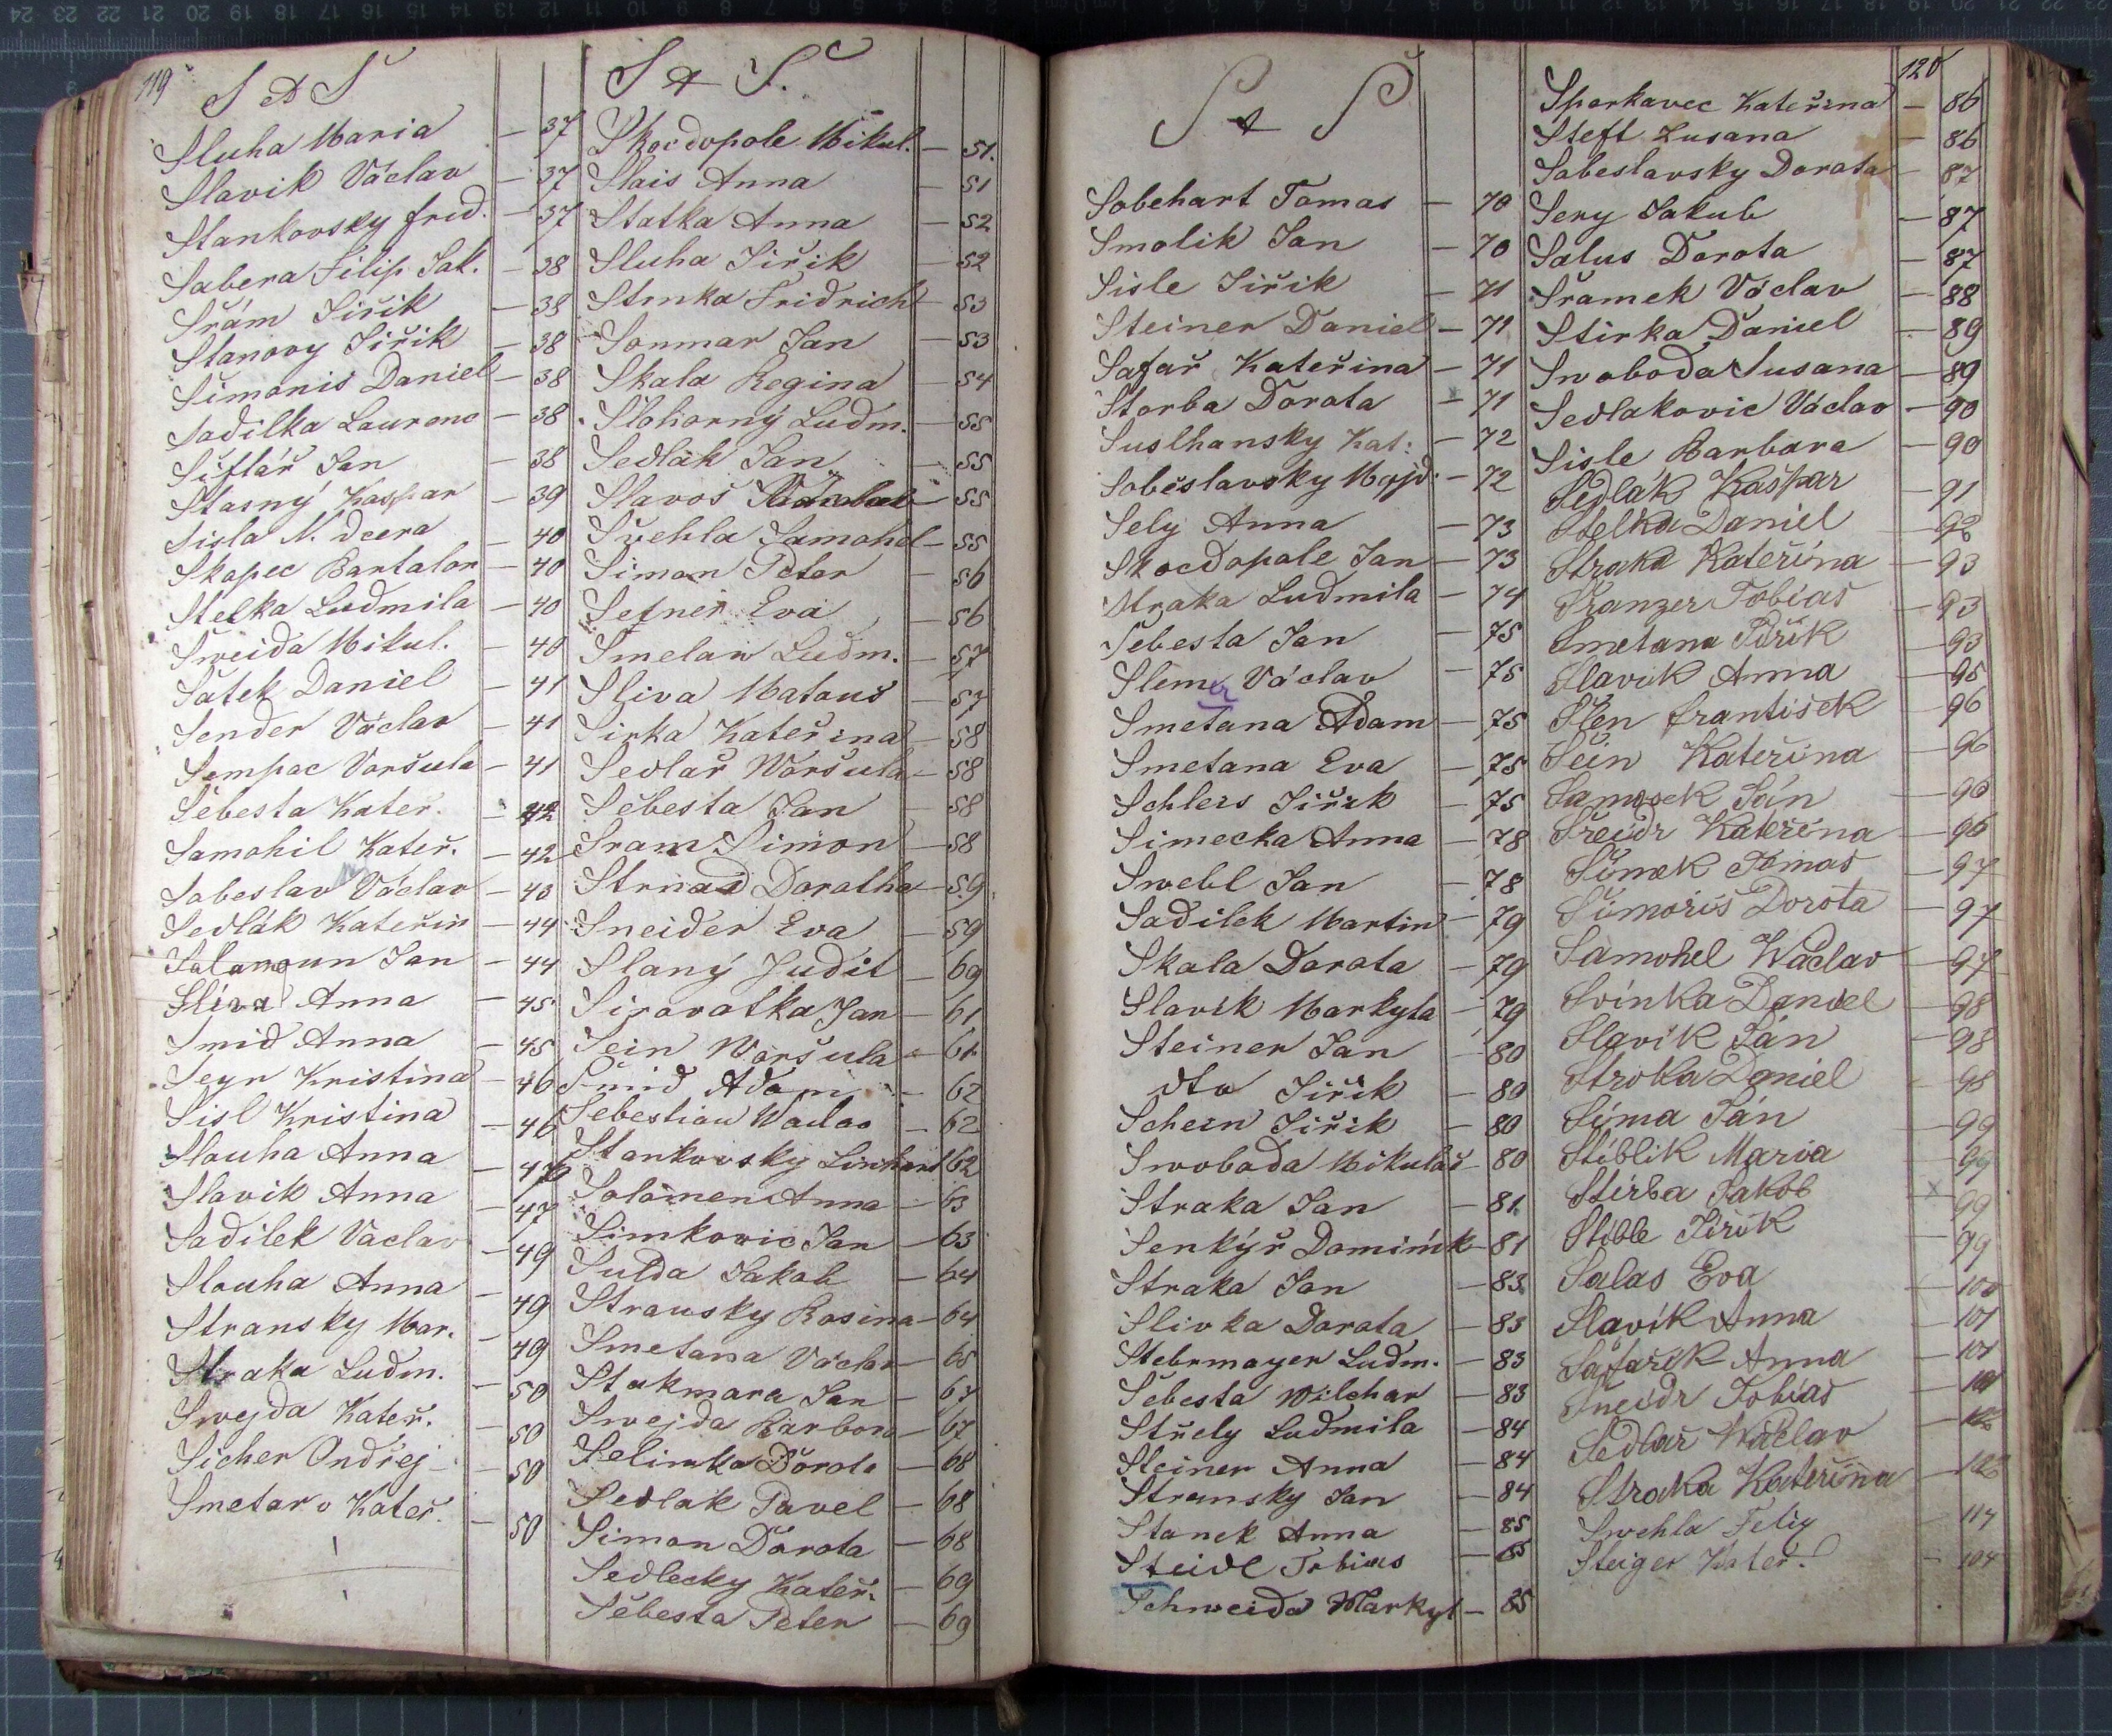 119
S & Š
Sluha Maria — 37
Slavik Václav — 37
Stankovsky frid. — 37
Sabera Filip Jak. — 38
Šrám Jiřik — 38
Stanovy Jiřik — 38
Simonis Daniel — 38
Sadilka Laurenc — 38
Šiflář Jan — 38
Stasný Kaspar — 39
Sisla N. dcera — 40
Skopec Bartalom — 40
Stelka Ludmila — 40
Sweida Mikul. — 40
Šatek Daniel — 41
Sender Václav — 41
Voršula — 41
Šebesta Kater. — 42
Samohil Kateř. — 42
Sobeslav Václav — 43
Sedlák Kateřin — 44
Salamoun Jan — 44
Slíva Anna — 45
Smid Anna — 45
Seyn Kristina — 46
Sisl Kristina — 46
Slouha Anna — 47
Slavik Anna — 47
Sadilek Vaclav — 49
Slouha Anna — 49
Stransky Mar. — 49
Straka Ludm. — 50
Swejda Kateř. — 50
Sicher Ondřej — 50
Smetano Kateř. — 50
S & Š.
Skočdopole Mikul. — 51.
Slais Anna — 51
Statka Anna — 52
Sluha Jiřik — 52
Strnka Fridrich — 53
Sommar Jan — 53
Skala Regina — 54
Ludm. — 55
Sedlák Jan — 55
Slavoš — 55
Švehla Samohel — 55
Simon Peter — 56
Sefner Eva — 56
Smelaw Ludm. — 57
Sliva Matouš — 57
Sirka Kateřina — 58
Sedlař Woršula — 58
Šebesta Jan — 58
Sram Simon — 58
Strnad Doratha — 59
Sneider Eva — 59
Slaný Judit — 60
Sirovatka Jan — 61
Sein Woršula — 61
Šmid Adam — 62
Šebestian Waclav — 62
Stankovsky Linhart 62
Solomen Anna — 63
Simkovic Jan — 63
Sulda Jakob — 64
Stransky Rosina — 64
Smetana Václav — 65
Stukmara Jan — 67
Swejda Barbora — 67
Selimka Dorota — 68
Sedlak Pavel — 68
Simon Dorota — 68
Sedlecky Kateř. — 69
Šebesta Peter — 69
S & Š
Sobehart Tomas — 70
Smolik Jan — 70
Sisle Jiřik — 71
Steiner Daniel — 71
Safař Kateřina — 71
Storba Dorota — 71
Suslhansky Kat: — 72
Soběslavsky Majd. — 72
Sely Anna — 73
Skocdopole Jan — 73
Straka Ludmila — 74
Šebesta Jan — 75
Slemr Václav — 75
Smetana Adam — 75
Smetana Eva — 75
Schleis Jiřik — 75
Simecka Anna — 78
Swebl Jan — 78
Sadilek Martin — 79
Skala Dorota — 79
Slavik Markyta — 79
Steiner Jan — 80
dto Jiřik — 80
Schein Jiřik — 80
Swoboda Mikuláš — 80
Straka Jan — 81
Senkýř Dominik — 81
Straka Jan — 83
Slivka Dorota — 83
Stebrmayer Ludm. — 83
Šebesta Milchar — 83
Střely Ludmila — 84
Steiner Anna — 84
Stransky Jan — 84
Stanek Anna — 85
Steidl Tobias — 85
Schweida Markyt — 85
120
Sporkavec Kateřina — 86
Steft Zusana — 86
Sobeslavsky Dorota — 87
Sery Jakub — 87
Salus Dorota — 87
Šramek Václav — 88
Stirka Daniel — 89
Swoboda Susana — 89
Sedlakovic Václav — 90
Sisle Barbara — 90
Sedlák Kašpar — 91
Stelka Daniel — 92
Straka Kateřina — 93
Sranzer Tobias — 93
Smetana Jiřik — 93
Slavik Anna — 95
Šlen frantisek — 96
Šein Kateřina — 96
Ján — 96
Šreidr Kateřina — 96
Šimek Tomas — 97
Šimoniš Dorota — 97
Samohel Waclav — 97
Svinka Daniel — 98
Slavik Ján — 98
Stroka Daniel — 98
Šima Ján — 99
Stiblik Maria — 99
Stirba Jakob — 99
Stible Jiřik — 99
Salas Eva — 100
Slavík Anna — 101
Šafařik Anna — 101
Šneidr Tobias — 101
Sedlař Waclav — 102
Straka Kateřina — 102
Swehla Felix — 117
Steiger Kateř. — 104